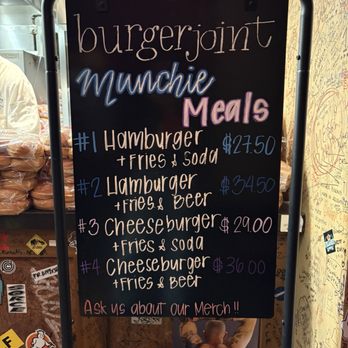 burgerjoint
munchie
Meals
#1 Hamburger $27.50
+ Fries & Soda
#2 Hamburger $34.50
+ Fries & Beer
#3 Cheeseburger $29.00
+ Fries & Soda
#4 Cheeseburger $36.00
+ Fries & Beer
Ask us about our Merch!!